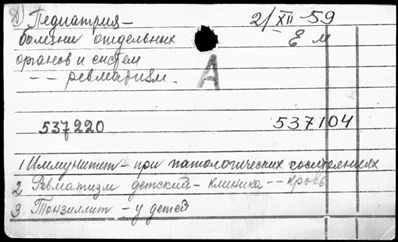 Д) Педиатрия - 2/XII-59
болезни отдельных Е м
органов и систем
-- ревматизм. А
537220 537104
1 Иммунитет - при патологических состояниях
2 Ревматизм детский - клиника -- кровь
3 Тонзиллит - у детей